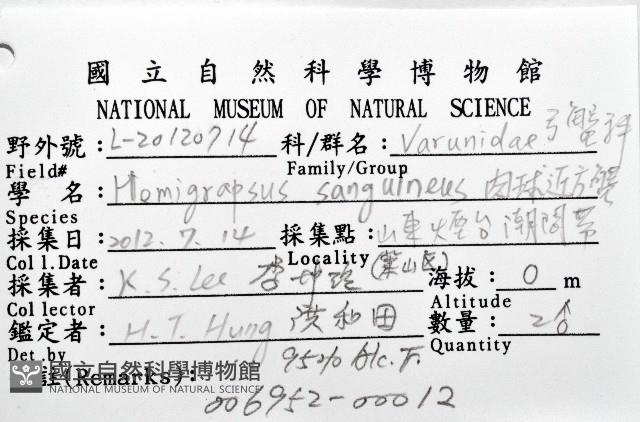 國立自然科學博物館
NATIONAL MUSEUM OF NATURAL SCIENCE
野外號:L-20120714 科/群名:Varunidae 弓蟹科
Field# Family/Group
學 名:Hemigrapsus sanguineus 肉球近方蟹
Species
採集日:2012.7.14 採集點:山東煙台潮間帶
Coll.Date Locality (萊山區)
採集者:K.S. Lee 李坤瑄 海拔:0 m
Collector Altitude
鑑定者:H.T. Hung 洪和田 數量:2♂
Det.by Quantity
95% Alc. F.
註(Remarks):
國立自然科學博物館
NATIONAL MUSEUM OF NATURAL SCIENCE
006952-00012